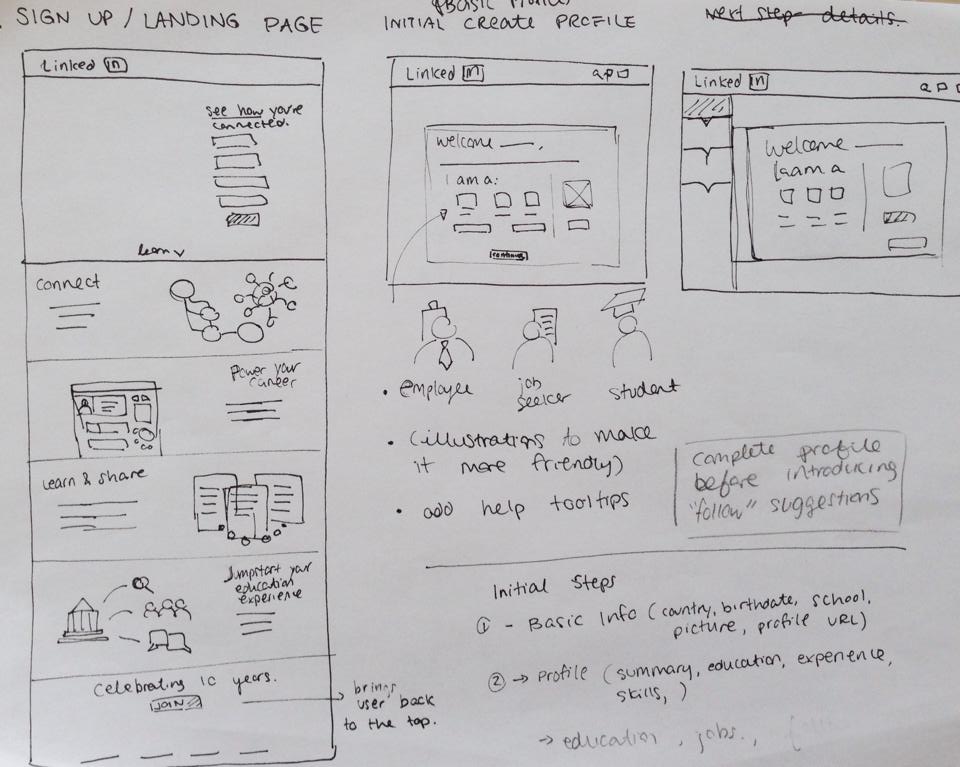 SIGN UP / LANDING PAGE
Linked in
see how you're
connected.
learn
connect
Power your
career
Learn & share
Jumpstart your
education
experience
Celebrating 10 years.
JOIN
brings
user back
to the top.
(Basic Profile)
INITIAL CREATE PROFILE
Linked in
Welcome ___,
I am a:
continue
employee
job
seeker
student
(illustrations to make
it more friendly)
add help tooltips
Next step details.
Linked in
Welcome
I am a
complete profile
before introducing
"follow" suggestions
Initial Steps
① - Basic Info (country, birthdate, school,
picture, profile URL)
② → Profile (summary, education, experience,
skills, )
→ education, jobs.,